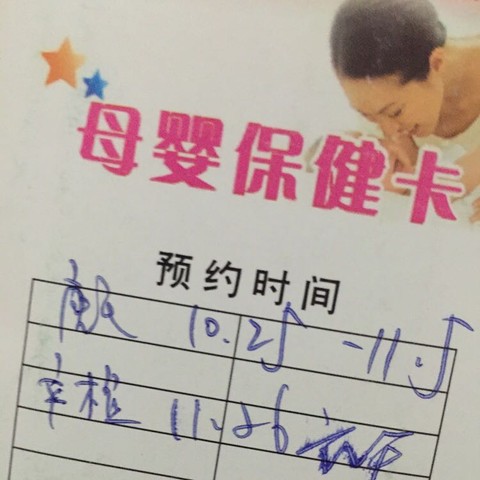 母婴保健卡
预约时间
唐氏 10.25 -11.5
产检 11.26